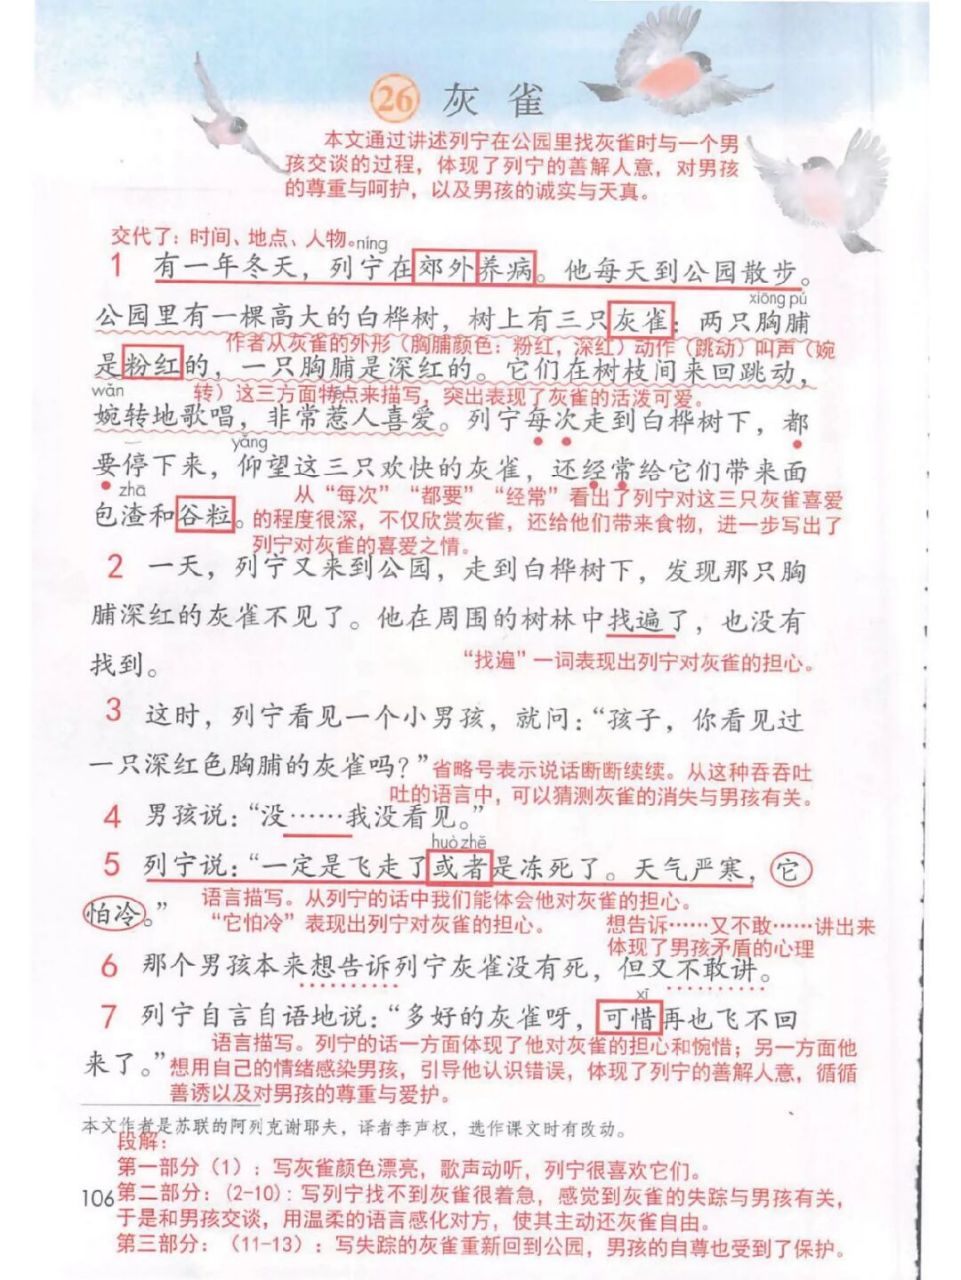 26 灰雀
本文通过讲述列宁在公园里找灰雀时与一个男
孩交谈的过程，体现了列宁的善解人意，对男孩
的尊重与呵护，以及男孩的诚实与天真。
交代了：时间、地点、人物。
níng
1 有一年冬天，列宁在郊外养病。他每天到公园散步。
xiōng pú
公园里有一棵高大的白桦树，树上有三只灰雀：两只胸脯
作者从灰雀的外形（胸脯颜色：粉红，深红）动作（跳动）叫声（婉
是粉红的，一只胸脯是深红的。它们在树枝间来回跳动，
wǎn
转）这三方面特点来描写，突出表现了灰雀的活泼可爱。
婉转地歌唱，非常惹人喜爱。列宁每次走到白桦树下，都
yǎng
要停下来，仰望这三只欢快的灰雀，还经常给它们带来面
zhā
从“每次”“都要”“经常”看出了列宁对这三只灰雀喜爱
包渣和谷粒。
的程度很深，不仅欣赏灰雀，还给他们带来食物，进一步写出了
列宁对灰雀的喜爱之情。
2 一天，列宁又来到公园，走到白桦树下，发现那只胸
脯深红的灰雀不见了。他在周围的树林中找遍了，也没有
找到。
“找遍”一词表现出列宁对灰雀的担心。
3 这时，列宁看见一个小男孩，就问：“孩子，你看见过
一只深红色胸脯的灰雀吗？”
省略号表示说话断断续续。从这种吞吞吐
吐的语言中，可以猜测灰雀的消失与男孩有关。
4 男孩说：“没……我没看见。”
huò zhě
5 列宁说：“一定是飞走了或者是冻死了。天气严寒，它
语言描写。从列宁的话中我们能体会他对灰雀的担心。
怕冷。”
“它怕冷”表现出列宁对灰雀的担心。
想告诉……又不敢……讲出来
体现了男孩矛盾的心理
6 那个男孩本来想告诉列宁灰雀没有死，但又不敢讲。
xī
7 列宁自言自语地说：“多好的灰雀呀，可惜再也飞不回
语言描写。列宁的话一方面体现了他对灰雀的担心和惋惜；另一方面他
来了。”
想用自己的情绪感染男孩，引导他认识错误，体现了列宁的善解人意，循循
善诱以及对男孩的尊重与爱护。
本文作者是苏联的阿列克谢耶夫，译者李声权，选作课文时有改动。
段解：
第一部分（1）：写灰雀颜色漂亮，歌声动听，列宁很喜欢它们。
106
第二部分：(2-10)：写列宁找不到灰雀很着急，感觉到灰雀的失踪与男孩有关，
于是和男孩交谈，用温柔的语言感化对方，使其主动还灰雀自由。
第三部分：（11-13）：写失踪的灰雀重新回到公园，男孩的自尊也受到了保护。